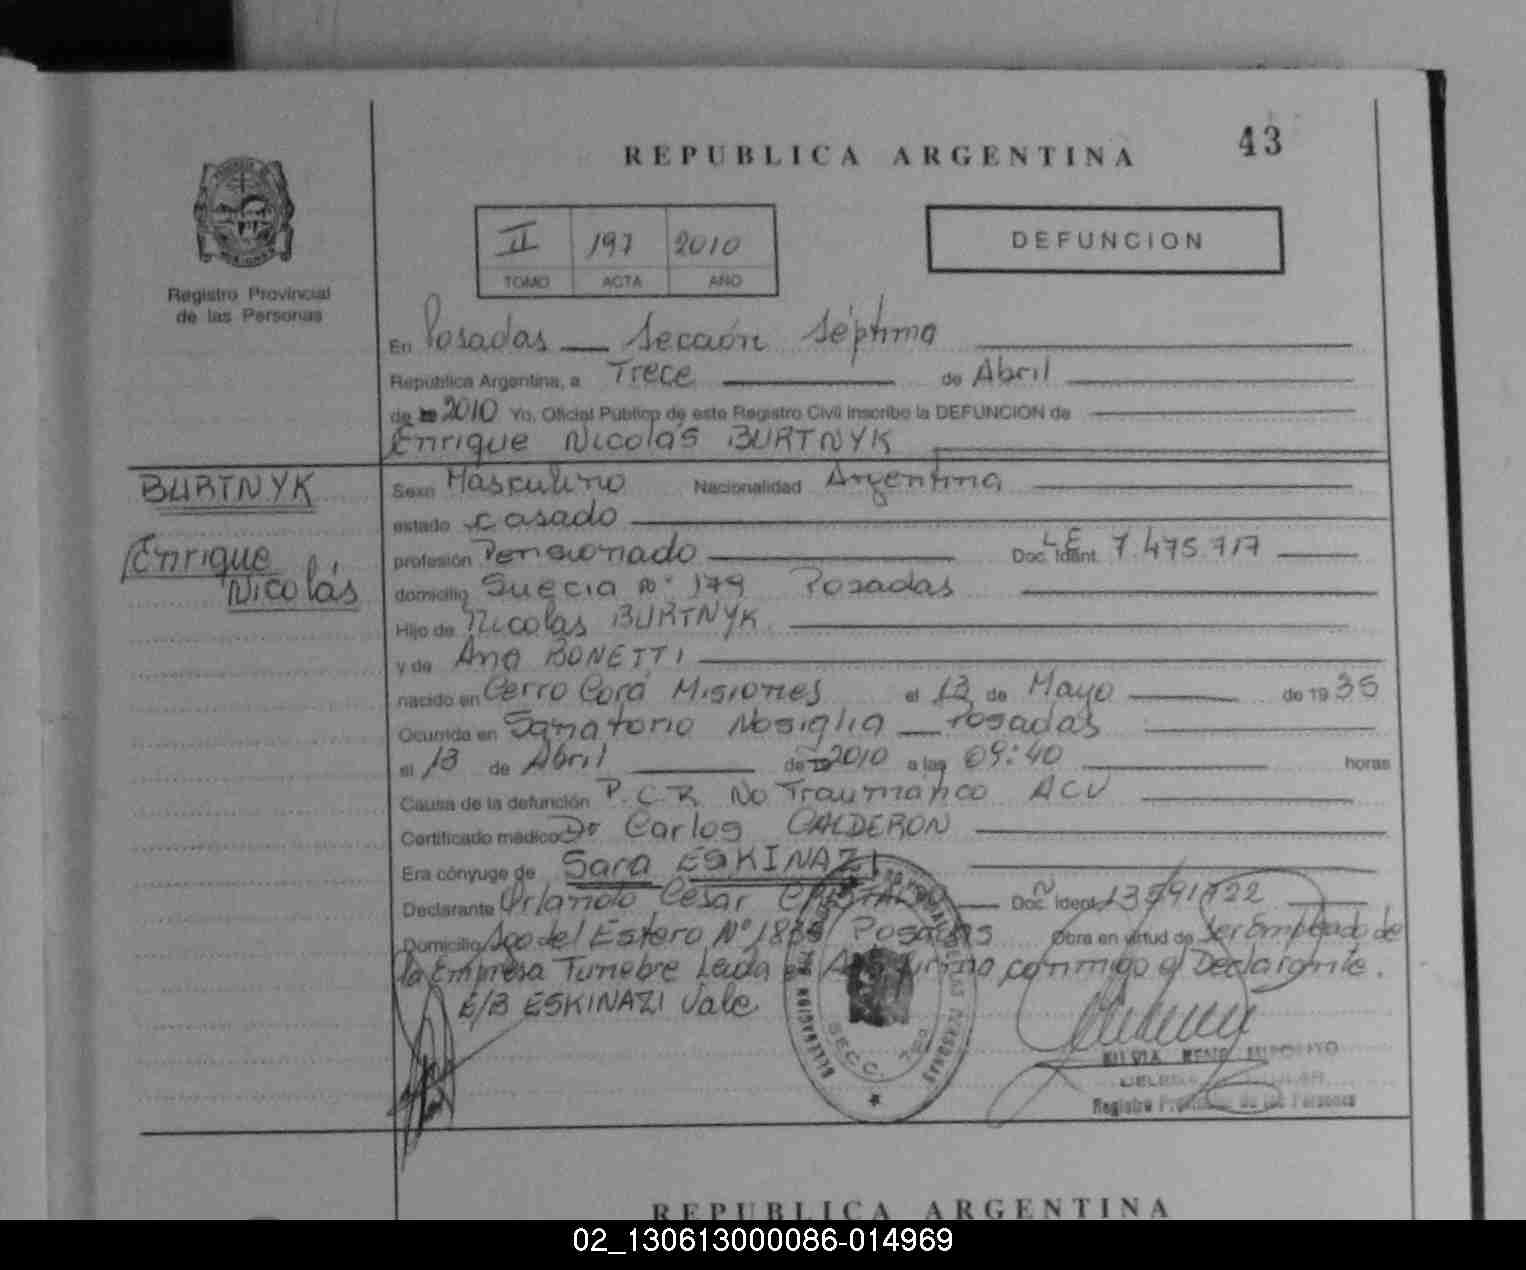 REPUBLICA ARGENTINA
43
II 197 2010
TOMO ACTA AÑO
DEFUNCION
Registro Provincial
de las Personas
En Posadas — Sección Séptima
Republica Argentina, a Trece de Abril
de 2010 Yo, Oficial Público de este Registro Civil inscribo la DEFUNCION de
Enrique Nicolás BURTNYK
BURTNYK
Enrique
Nicolás
Sexo Masculino Nacionalidad Argentina
estado casado
profesión Pensionado Doc. Ident. L E 7.475.717
domicilio Suecia Nº 179 Posadas
Hijo de Nicolás BURTNYK
y de Ana BONETTI
nacido en Cerro Corá Misiones el 13 de Mayo de 1935
Ocurrida en Sanatorio Nosiglia — Posadas
el 13 de Abril de 2010 a las 09:40 horas
Causa de la defunción P.C.R. No Traumatico ACV
Certificado médico Dr Carlos CALDERON
Era cónyuge de Sara ESKINAZI
Declarante Orlando Cesar CRISTALDO Doc. Ident.
Domicilio Sgo del Estero Nº Posadas Obra en virtud de Ser Empleado de
la Empresa Funebre Leida el Acta firma conmigo el Declarante.
E/B ESKINAZI Vale
DELEGACION
SECC. 7ma
Registro Provincial de las Personas
REPUBLICA ARGENTINA
02_130613000086-014969